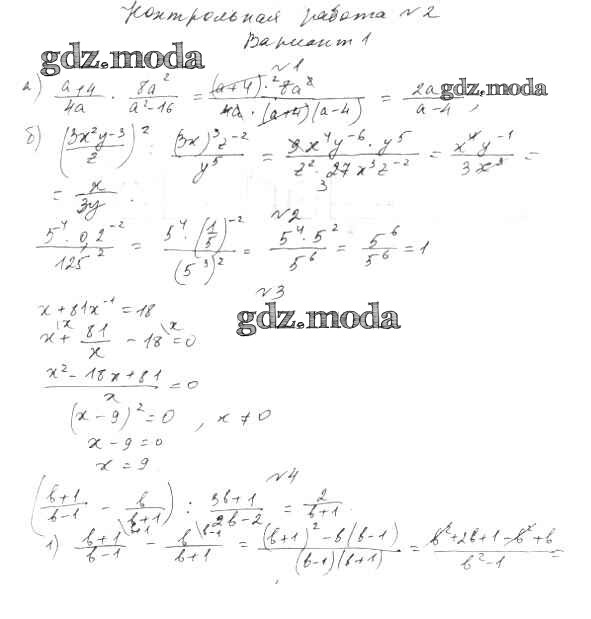 Контрольная работа №2
Вариант 1
gdz.moda
№1
а) (a+4)/(4a) · (8a²)/(a²-16) = ((a+4)·²8a²)/(4a·(a+4)(a-4)) = 2a/(a-4),
gdz.moda
б) ((3x²y⁻³)/z)² : ((3x)³z⁻²)/y⁵ = (9x⁴y⁻⁶·y⁵)/(z²·27x³z⁻²) = (x⁴y⁻¹)/(3x³) =
= x/(3y).
№2
(5⁴·0,2⁻²)/125² = (5⁴·(1/5)⁻²)/(5³)² = (5⁴·5²)/5⁶ = 5⁶/5⁶ = 1
№3
gdz.moda
x + 81x⁻¹ = 18
x + 81/x - 18 = 0
(x² - 18x + 81)/x = 0
(x - 9)² = 0, x ≠ 0
x - 9 = 0
x = 9
№4
((b+1)/(b-1) - b/(b+1)) : (3b+1)/(2b-2) = 2/(b+1)
1) (b+1)/(b-1) - b/(b+1) = ((b+1)² - b(b-1))/((b-1)(b+1)) = (b²+2b+1-b²+b)/(b²-1) =